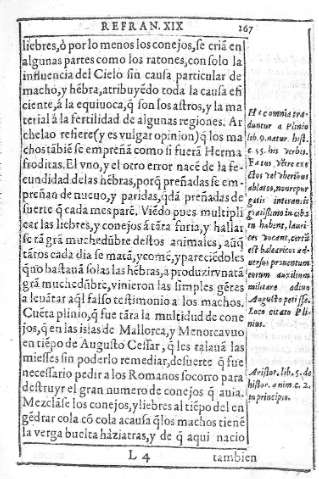 REFRAN. XIX
267
liebres, ò por lo menos los conejos, se criã en
algunas partes como los ratones, con solo la
influencia del Cielo sin causa particular de
macho, y hẽbra, atribuyẽdo toda la causa efi
ciente, á la equiuoca, q̃ son los astros, y la ma
terial á la fertilidad de algunas regiones. Ar
chelao refiere (y es vulgar opinion) q̃ los ma
chos tãbiẽ se empreñã como si fuerã Herma
froditas. El vno, y el otro error nacẽ de la fe-
cundidad de las hẽbras, porq̃ preñadas se em-
preñan de nueuo, y paridas, qdã preñadas de
suerte q̃ cada mes parẽ. Viẽdo pues multipli
car las liebres, y conejos á tãta furia, y hallar
se tã grã muchedũbre destos animales, aũq̃
tãtos cada dia se matã, y comẽ, y pareciẽdoles
q̃ no bastauã solas las hẽbras, a produzir vna tã
grã muchedũbre, vinieron las simples gẽtes
a leuãtar aq̃l falso testimonio a los machos.
Cuẽta plinio, q̃ fue tãta la multidud de cone
jos, q̃ en las islas de Mallorca, y Menorca vuo
en tiẽpo de Augusto Cessar, q̃ les talauã las
miesses sin poderlo remediar, desuerte q̃ fue
necessario pedir a los Romanos socorro para
destruyr el gran numero de conejos q̃ auia.
Mezclãse los conejos, y liebres al tiẽpo del en
gẽdrar cola cõ cola a causa q̃ los machos tienẽ
la verga buelta hàzia tras, y de q̃ aqui nacio
L 4
tambien
Hec omnia tra-
duntur a Plinio
lib. 9. natur. hist.
c. 55. ins verbis.
Fætus vẽtre exe
ctos vel vberibus
ablatos, non repur
gatis interaneis
gratissimo in cibo
habent, lauri
ces vocant, certũ
est balearicos ad
uersus prouentum
eorum auxilium
militare a diuo
Augusto petisse.
Loco citato Pli-
nios.
Aristot. lib. 5. de
histor. anim. c. 2.
in principio.